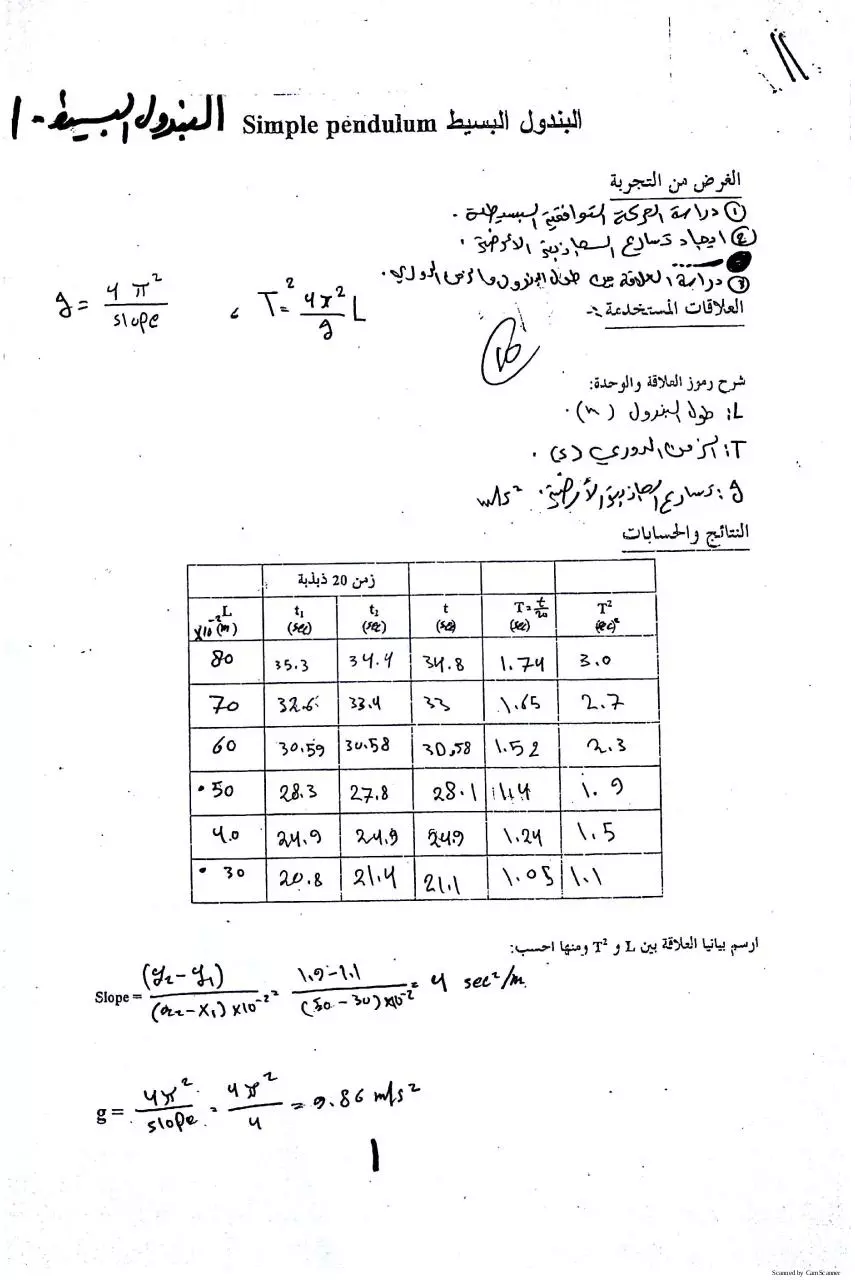 البندول البسيط - 1
Simple pendulum البندول البسيط
الغرض من التجربة
① دراسة الحركة التوافقية البسيطة .
② ايجاد تسارع الجاذبية الأرضية .
③ دراسة العلاقة بين طول البندول والزمن الدوري .
العلاقات المستخدمة :-
g = 4 π² / slope ، T² = 4π² / g L
شرح رموز العلاقة والوحدة:
L: طول البندول (m) .
T: الزمن الدوري (s) .
g: تسارع الجاذبية الأرضية . m/s²
النتائج والحسابات
زمن 20 ذبذبة
L x10⁻² (m) t₁ (sec) t₂ (sec) t (sec) T = t/20 (sec) T² (sec)²
80 35.3 34.4 34.8 1.74 3.0
70 32.6 33.4 33 1.65 2.7
60 30.59 30.58 30.58 1.52 2.3
50 28.3 27.8 28.1 1.4 1.9
40 24.9 24.9 24.9 1.24 1.5
30 20.8 21.4 21.1 1.05 1.1
ارسم بيانيا العلاقة بين L و T² ومنها احسب:
Slope = (y₂ - y₁) / (x₂ - x₁) x10⁻² = 1.9 - 1.1 / (50 - 30) x10⁻² = 4 sec²/m
g = 4π² / slope = 4π² / 4 = 9.86 m/s²
1
Scanned by CamScanner